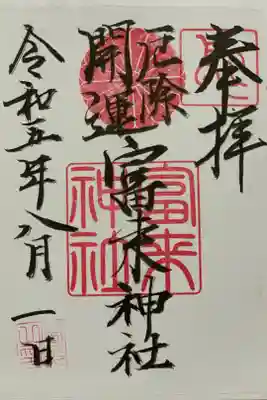 奉拝
厄除
開運
富来神社
富来
神社
令和五年八月一日